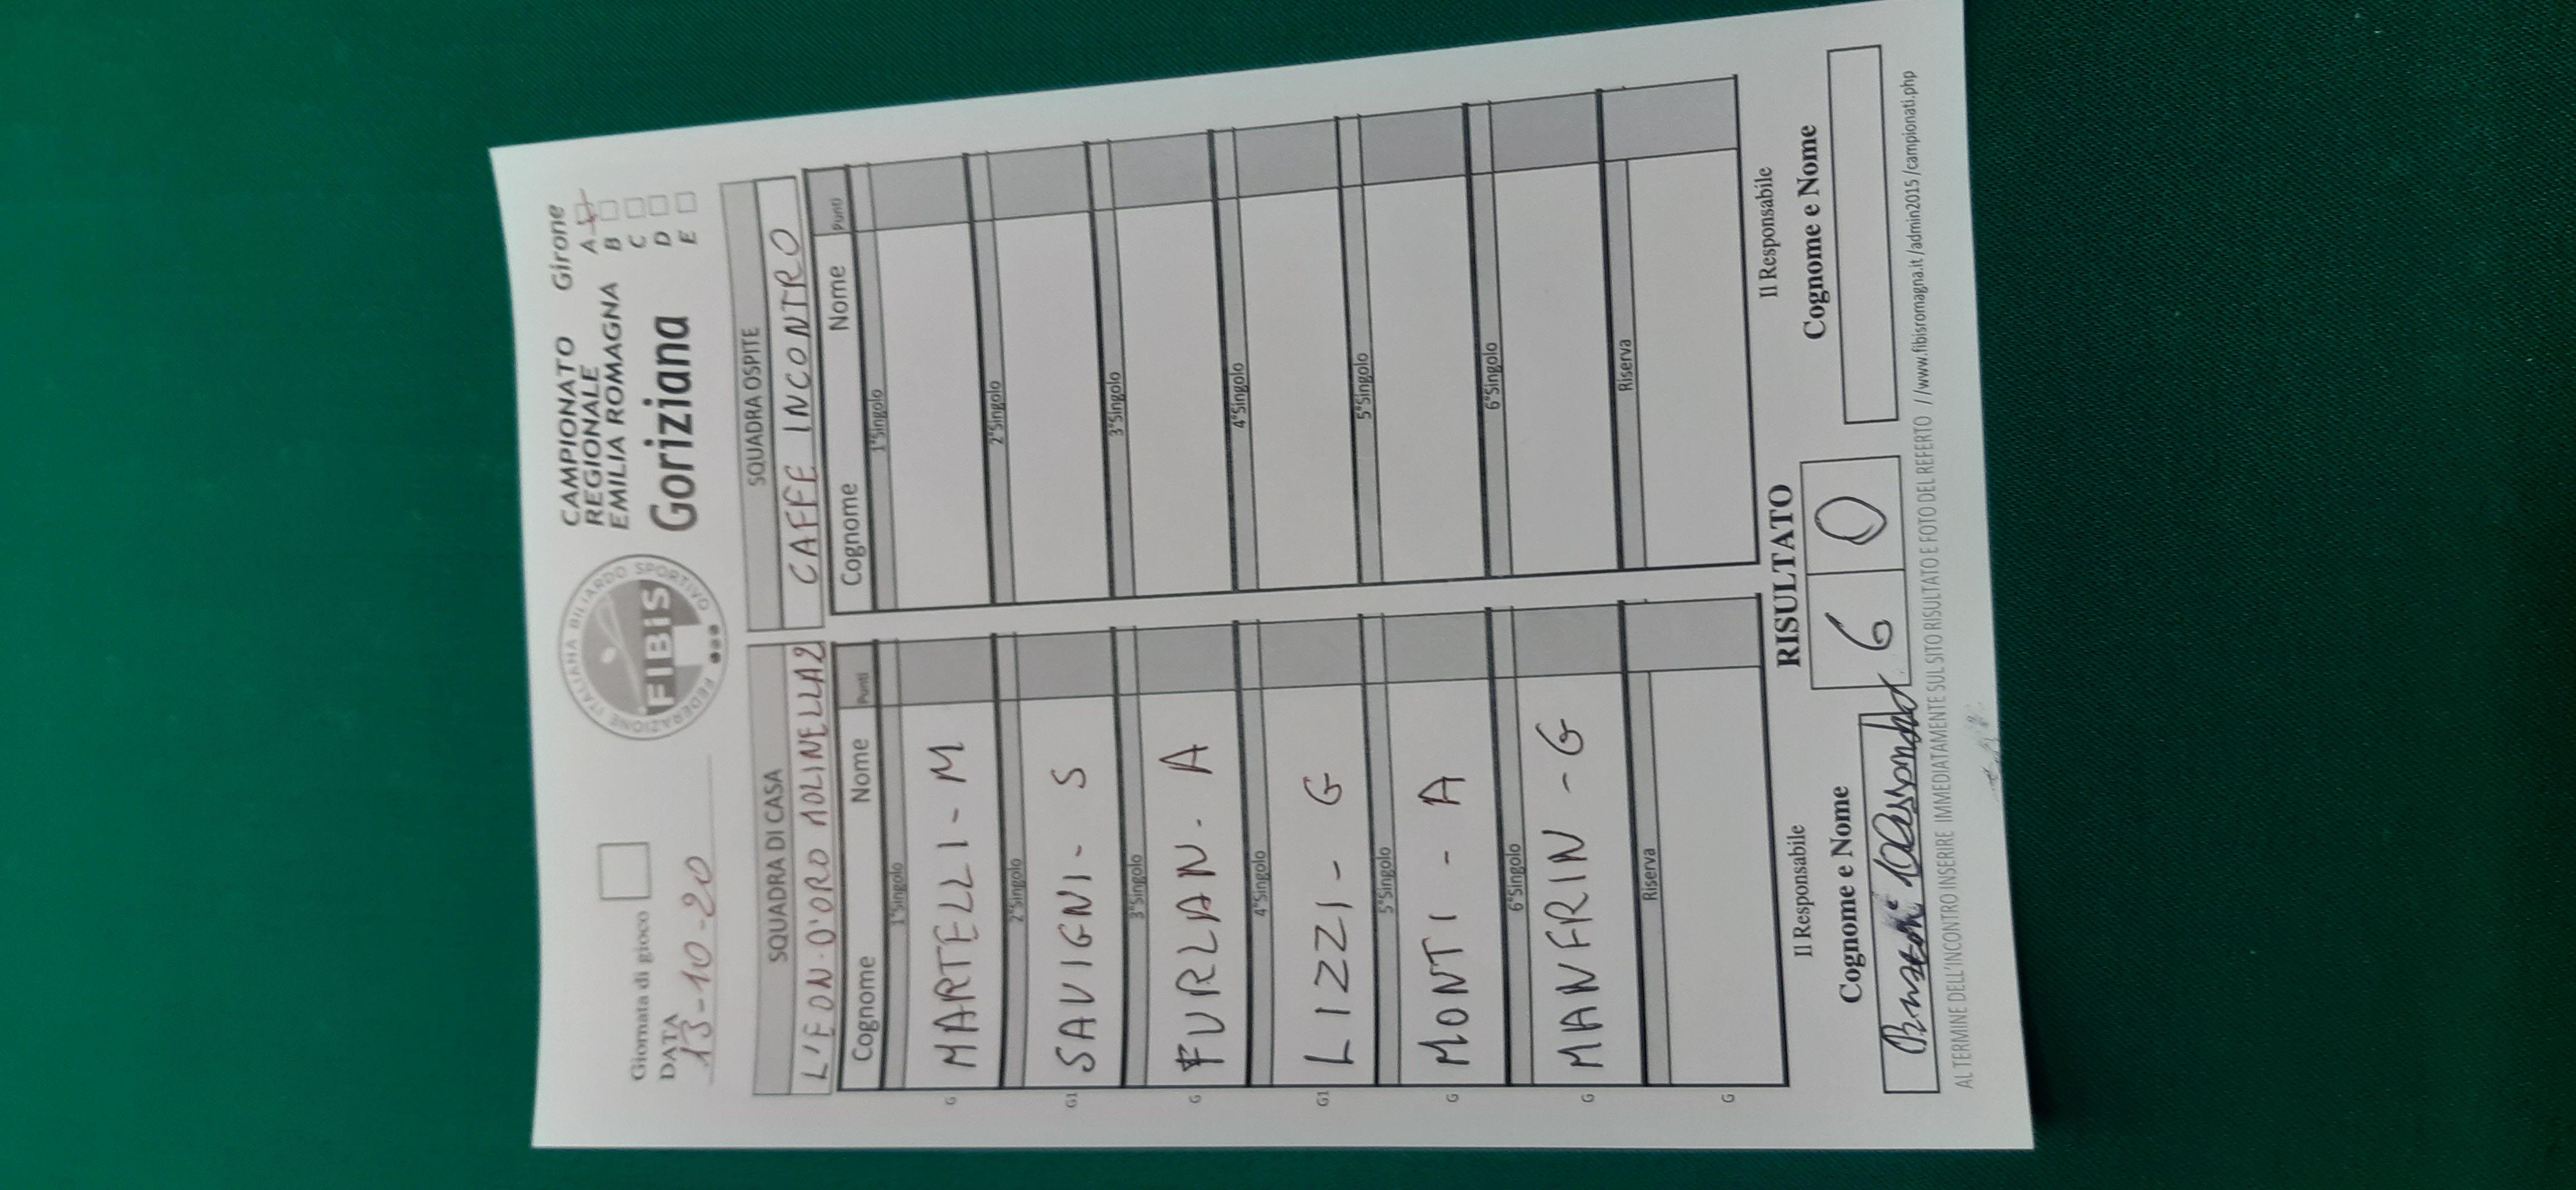 Giornata di gioco
DATA
13-10-20
FEDERAZIONE ITALIANA BILIARDO SPORTIVO
FIBiS
CAMPIONATO
REGIONALE
EMILIA ROMAGNA
Goriziana
Girone
A
B
C
D
E
SQUADRA DI CASA
L'EON-D'ORO MOLINELLA2
Cognome Nome Punti
1°Singolo
G MARTELLI - M
2°Singolo
G1 SAVIGNI - S
3°Singolo
G FURLAN - A
4°Singolo
G1 LIZZI - G
5°Singolo
G MONTI - A
6°Singolo
G MANFRIN - G
Riserva
G
SQUADRA OSPITE
CAFFE INCONTRO
Cognome Nome Punti
1°Singolo
2°Singolo
3°Singolo
4°Singolo
5°Singolo
6°Singolo
Riserva
Il Responsabile
Cognome e Nome
RISULTATO
6 0
Il Responsabile
Cognome e Nome
AL TERMINE DELL'INCONTRO INSERIRE IMMEDIATAMENTE SUL SITO RISULTATO E FOTO DEL REFERTO //www.fibisromagna.it/admin2015/campionati.php